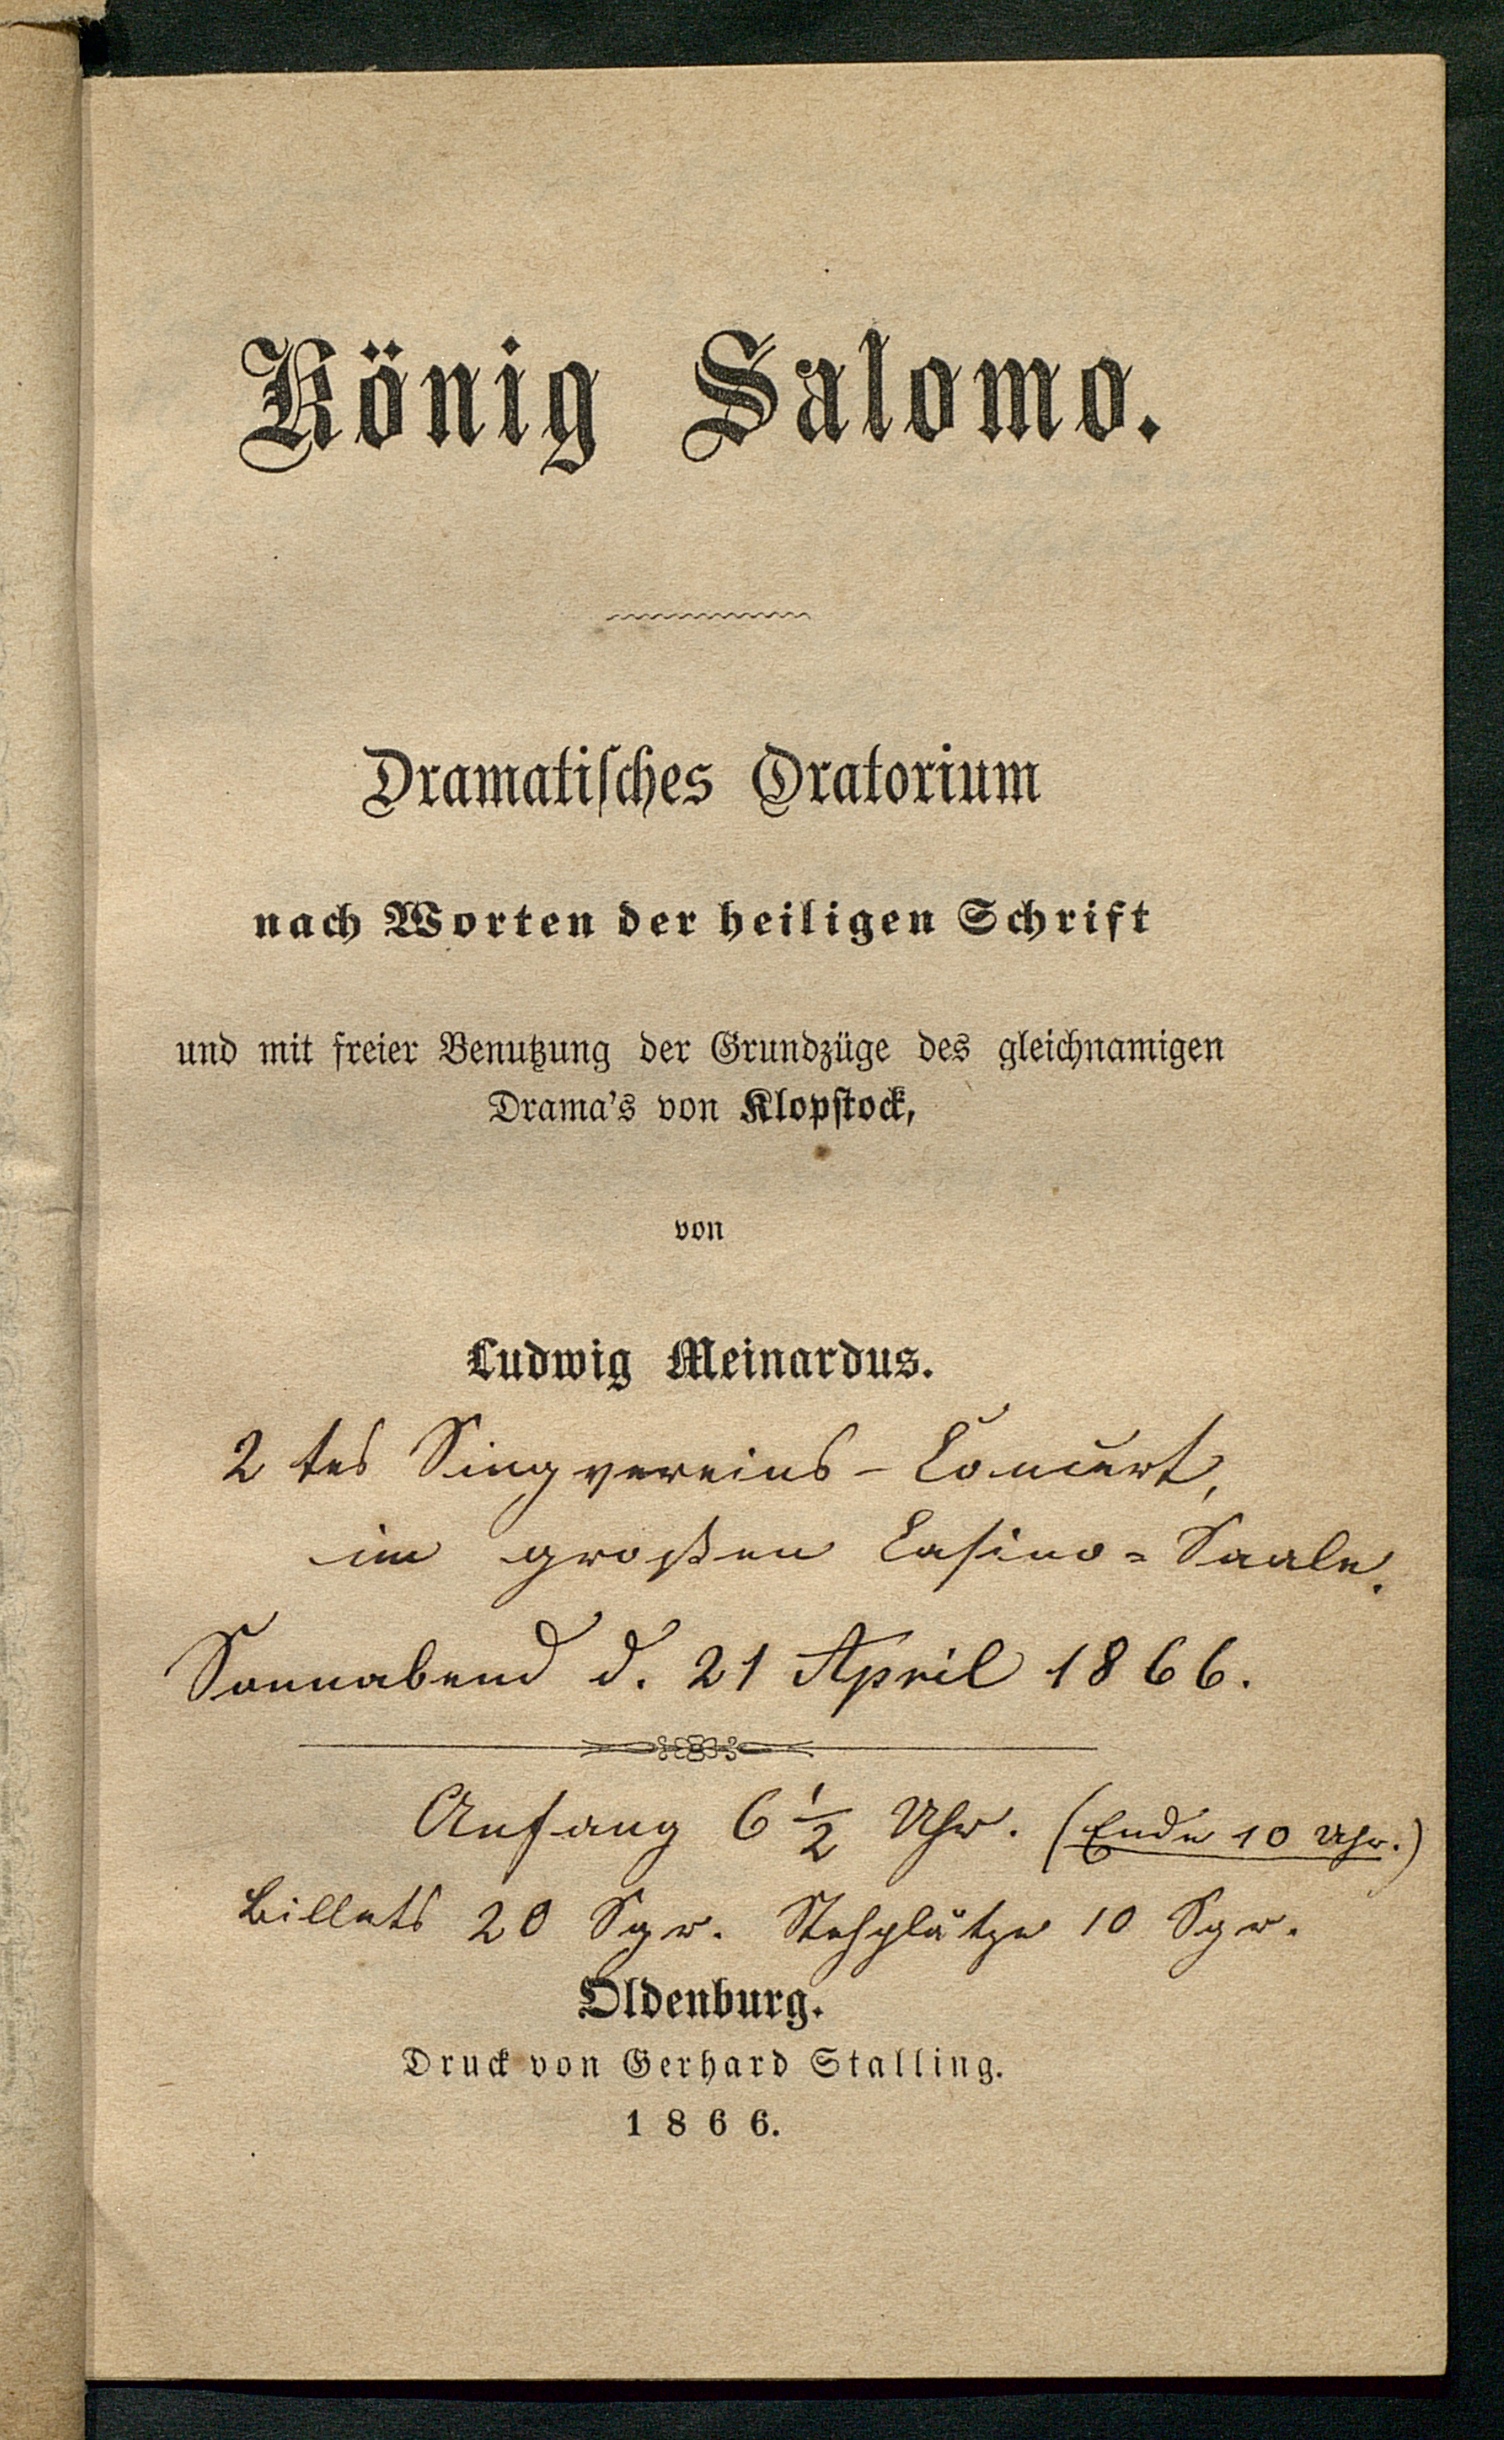 König Salomo.
Dramatisches Oratorium
nach Worten der heiligen Schrift
und mit freier Benutzung der Grundzüge des gleichnamigen
Drama's von Klopstock,
von
Ludwig Meinardus.
2 tes Singvereins-Concert,
im großen Casino=Saale.
Sonnabend d. 21 April 1866.
Anfang 6 1/2 Uhr. (Ende 10 Uhr.)
Billets 20 Sgr. Stehplätze 10 Sgr.
Oldenburg.
Druck von Gerhard Stalling.
1866.